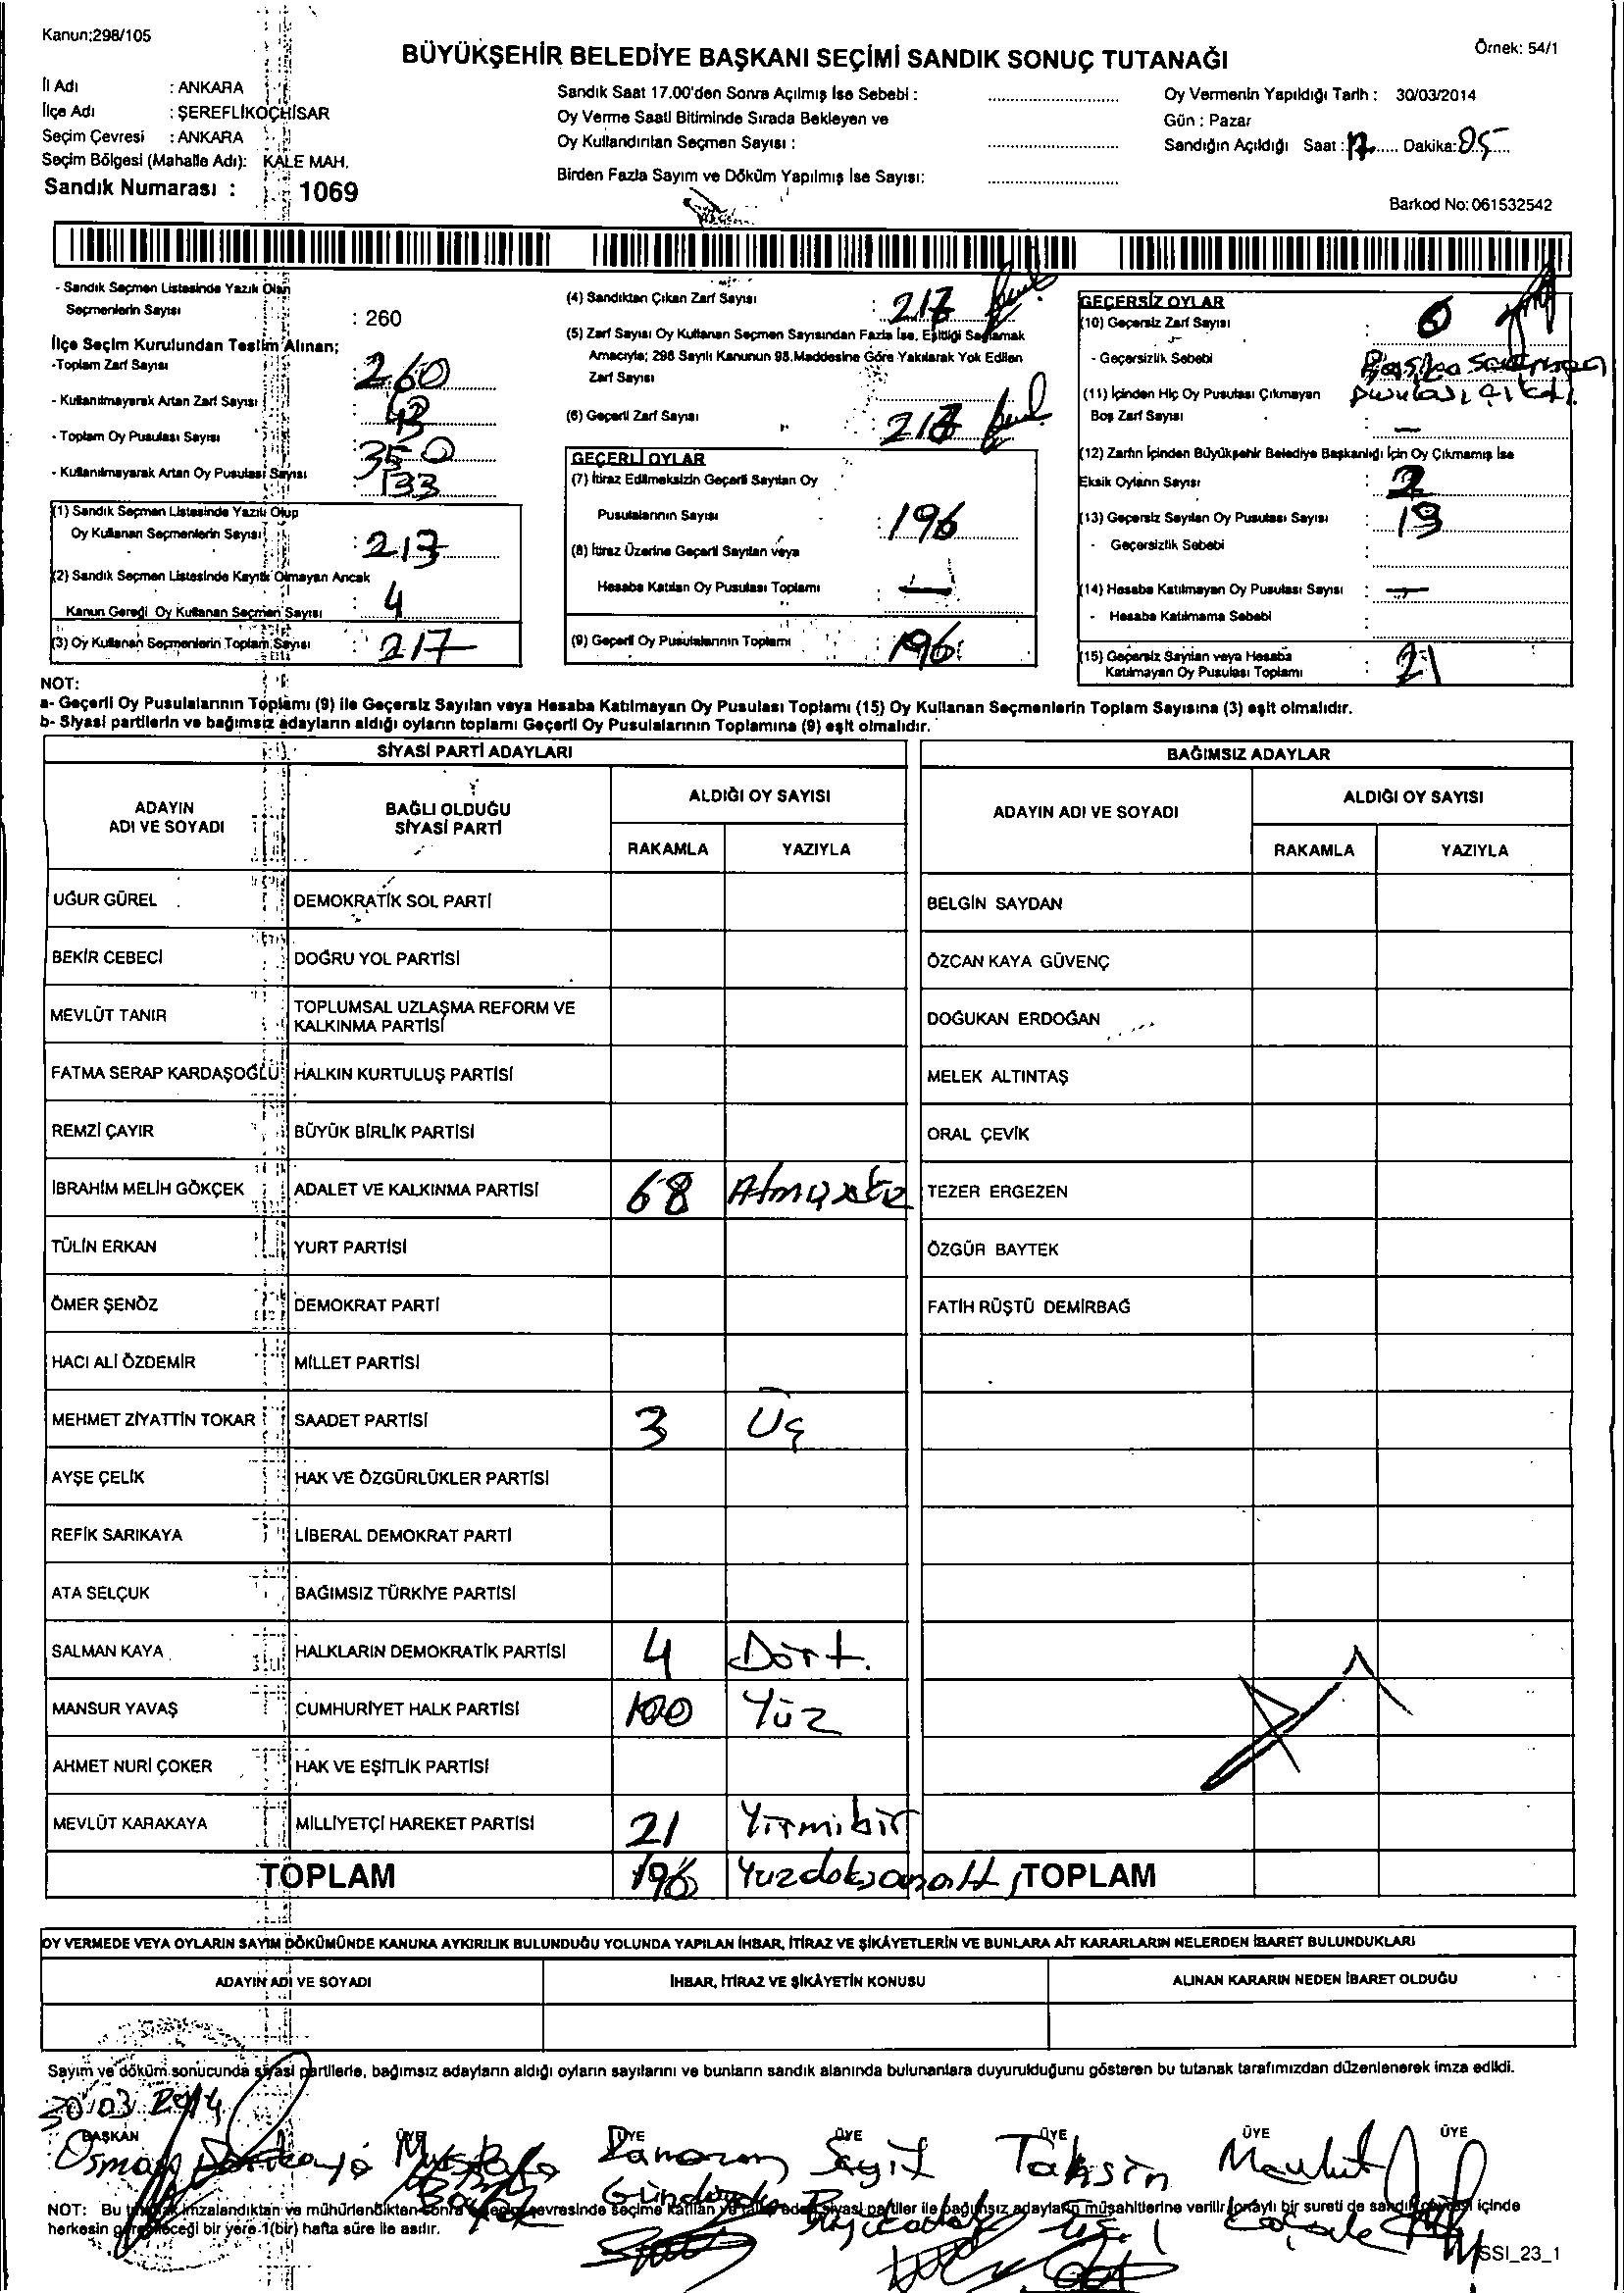 Kanun:298/105
Örnek: 54/1
BÜYÜKŞEHİR BELEDİYE BAŞKANI SEÇİMİ SANDIK SONUÇ TUTANAĞI
İl Adı : ANKARA
İlçe Adı : ŞEREFLİKOÇHİSAR
Seçim Çevresi : ANKARA
Seçim Bölgesi (Mahalle Adı): KALE MAH.
Sandık Numarası : 1069
Sandık Saat 17.00'den Sonra Açılmış İse Sebebi :
Oy Verme Saati Bitiminde Sırada Bekleyen ve
Oy Kullandırılan Seçmen Sayısı :
Birden Fazla Sayım ve Döküm Yapılmış İse Sayısı:
Oy Vermenin Yapıldığı Tarih : 30/03/2014
Gün : Pazar
Sandığın Açıldığı Saat : 17 Dakika: 05
Barkod No: 061532542
- Sandık Seçmen Listesinde Yazılı Olan
Seçmenlerin Sayısı : 260
İlçe Seçim Kurulundan Teslim Alınan;
-Toplam Zarf Sayısı : 260
- Kullanılmayarak Artan Zarf Sayısı : 43
- Toplam Oy Pusulası Sayısı : 350
- Kullanılmayarak Artan Oy Pusulası Sayısı : 133
(1) Sandık Seçmen Listesinde Yazılı Olup
Oy Kullanan Seçmenlerin Sayısı : 213
(2) Sandık Seçmen Listesinde Kayıtlı Olmayan Ancak
Kanun Gereği Oy Kullanan Seçmen Sayısı : 4
(3) Oy Kullanan Seçmenlerin Toplam Sayısı : 217
(4) Sandıktan Çıkan Zarf Sayısı : 217
(5) Zarf Sayısı Oy Kullanan Seçmen Sayısından Fazla İse, Eşitliği Sağlamak
Amacıyla; 298 Sayılı Kanunun 98.Maddesine Göre Yakılarak Yok Edilen
Zarf Sayısı
(6) Geçerli Zarf Sayısı : 217
GEÇERLİ OYLAR
(7) İtiraz Edilmeksizin Geçerli Sayılan Oy
Pusulalarının Sayısı : 196
(8) İtiraz Üzerine Geçerli Sayılan veya
Hesaba Katılan Oy Pusulası Toplamı : —
(9) Geçerli Oy Pusulalarının Toplamı : 196
GEÇERSİZ OYLAR
(10) Geçersiz Zarf Sayısı :
- Geçersizlik Sebebi : Başka
pusulası çıktı
(11) İçinden Hiç Oy Pusulası Çıkmayan
Boş Zarf Sayısı : —
(12) Zarfın İçinden Büyükşehir Belediye Başkanlığı İçin Oy Çıkmamış İse
Eksik Oyların Sayısı : 2
(13) Geçersiz Sayılan Oy Pusulası Sayısı : 19
- Geçersizlik Sebebi :
(14) Hesaba Katılmayan Oy Pusulası Sayısı : —
- Hesaba Katılmama Sebebi :
(15) Geçersiz Sayılan veya Hesaba
Katılmayan Oy Pusulası Toplamı : 21
NOT:
a- Geçerli Oy Pusulalarının Toplamı (9) ile Geçersiz Sayılan veya Hesaba Katılmayan Oy Pusulası Toplamı (15) Oy Kullanan Seçmenlerin Toplam Sayısına (3) eşit olmalıdır.
b- Siyasi partilerin ve bağımsız adayların aldığı oyların toplamı Geçerli Oy Pusulalarının Toplamına (9) eşit olmalıdır.
SİYASİ PARTİ ADAYLARI
ADAYIN ADI VE SOYADI
BAĞLI OLDUĞU SİYASİ PARTİ
ALDIĞI OY SAYISI
RAKAMLA YAZIYLA
UĞUR GÜREL DEMOKRATİK SOL PARTİ
BEKİR CEBECİ DOĞRU YOL PARTİSİ
MEVLÜT TANIR TOPLUMSAL UZLAŞMA REFORM VE KALKINMA PARTİSİ
FATMA SERAP KARDAŞOĞLU HALKIN KURTULUŞ PARTİSİ
REMZİ ÇAYIR BÜYÜK BİRLİK PARTİSİ
İBRAHİM MELİH GÖKÇEK ADALET VE KALKINMA PARTİSİ 68
TÜLİN ERKAN YURT PARTİSİ
ÖMER ŞENÖZ DEMOKRAT PARTİ
HACI ALİ ÖZDEMİR MİLLET PARTİSİ
MEHMET ZİYATTİN TOKAR SAADET PARTİSİ 3 Üç
AYŞE ÇELİK HAK VE ÖZGÜRLÜKLER PARTİSİ
REFİK SARIKAYA LİBERAL DEMOKRAT PARTİ
ATA SELÇUK BAĞIMSIZ TÜRKİYE PARTİSİ
SALMAN KAYA HALKLARIN DEMOKRATİK PARTİSİ 4 Dört.
MANSUR YAVAŞ CUMHURİYET HALK PARTİSİ 100 Yüz
AHMET NURİ ÇOKER HAK VE EŞİTLİK PARTİSİ
MEVLÜT KARAKAYA MİLLİYETÇİ HAREKET PARTİSİ 21 Yirmibir
TOPLAM 196 Yuzdoksanaltı
BAĞIMSIZ ADAYLAR
ADAYIN ADI VE SOYADI
ALDIĞI OY SAYISI
RAKAMLA YAZIYLA
BELGİN SAYDAN
ÖZCAN KAYA GÜVENÇ
DOĞUKAN ERDOĞAN
MELEK ALTINTAŞ
ORAL ÇEVİK
TEZER ERGEZEN
ÖZGÜR BAYTEK
FATİH RÜŞTÜ DEMİRBAĞ
TOPLAM
OY VERMEDE VEYA OYLARIN SAYIM DÖKÜMÜNDE KANUNA AYKIRILIK BULUNDUĞU YOLUNDA YAPILAN İHBAR, İTİRAZ VE ŞİKÂYETLERİN VE BUNLARA AİT KARARLARIN NELERDEN İBARET BULUNDUKLARI
ADAYIN ADI VE SOYADI İHBAR, İTİRAZ VE ŞİKÂYETİN KONUSU ALINAN KARARIN NEDEN İBARET OLDUĞU
Sayım ve döküm sonucunda siyasi partilerle, bağımsız adayların aldığı oyların sayılarını ve bunların sandık alanında bulunanlara duyurulduğunu gösteren bu tutanak tarafımızdan düzenlenerek imza edildi.
30/03/2014
BAŞKAN ÜYE ÜYE ÜYE ÜYE ÜYE ÜYE
Osman Mustafa Ramazan Seyit Tahsin Mevlut
NOT: Bu tutanak imzalandıktan ve mühürlendikten sonra seçim çevresinde seçime katılan ve talep eden siyasi partiler ile bağımsız adayların müşahitlerine verilir, onaylı bir sureti de sandık çevresi içinde
herkesin görebileceği bir yere 1(bir) hafta süre ile asılır.
SSI_23_1